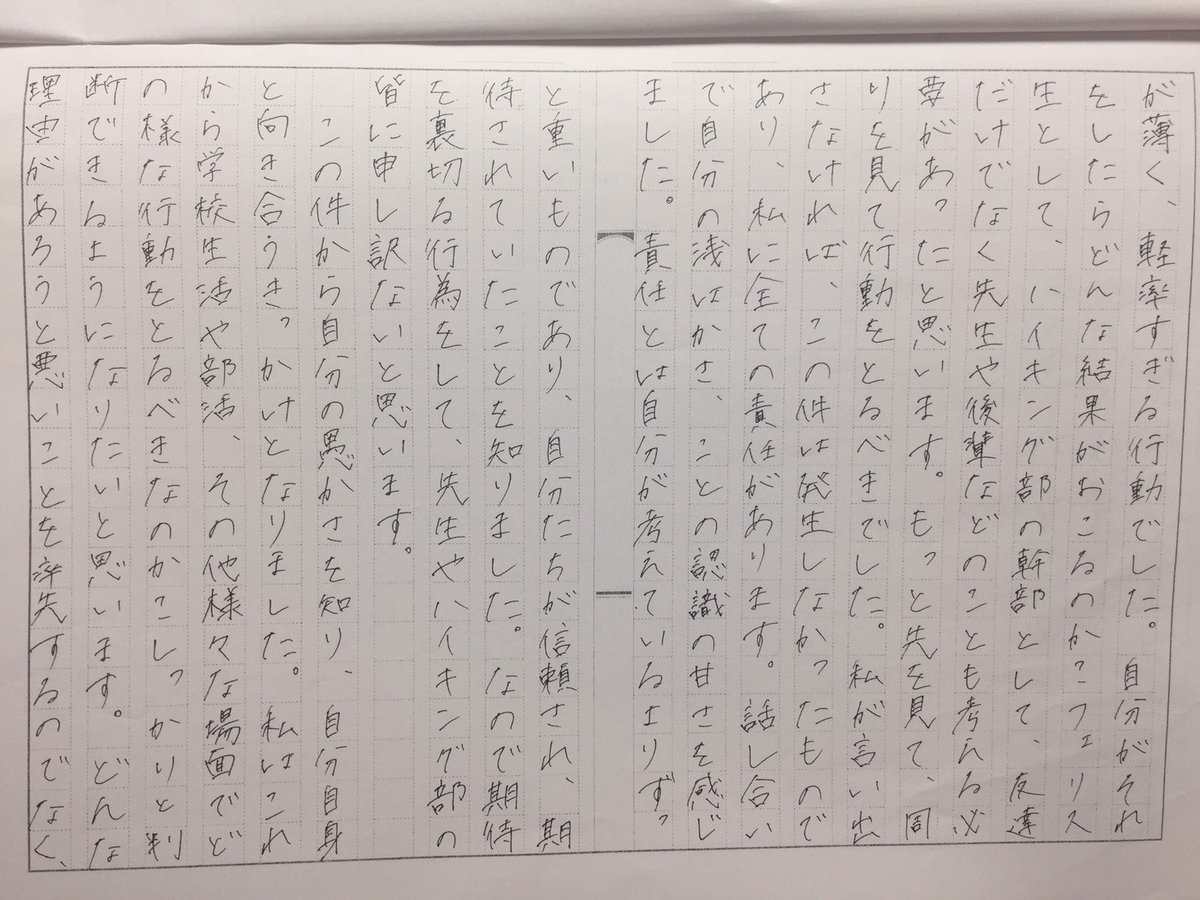 が薄く、軽率すぎる行動でした。自分がそれ
をしたらどんな結果がおこるのかこフェリス
生として、ハイキング部の幹部として、友達
だけでなく先生や後輩などのことも考える必
要があったと思います。もっと先を見て、周
りを見て行動をとるべきでした。私が言い出
さなければ、この件は発生しなかったもので
あり、私に全ての責任があります。話し合い
で自分の浅はかさ、ことの認識の甘さを感じ
ました。責任とは自分が考えているよりずっ
と重いものであり、自分たちが信頼され、期
待されていたことを知りました。なので期待
を裏切る行為をして、先生やハイキング部の
皆に申し訳ないと思います。
この件から自分の愚かさを知り、自分自身
と向き合うきっかけとなりました。私はこれ
から学校生活や部活、その他様々な場面でど
の様な行動をとるべきなのかこしっかりと判
断できるようになりたいと思います。どんな
理由があろうと悪いことをするのでなく、